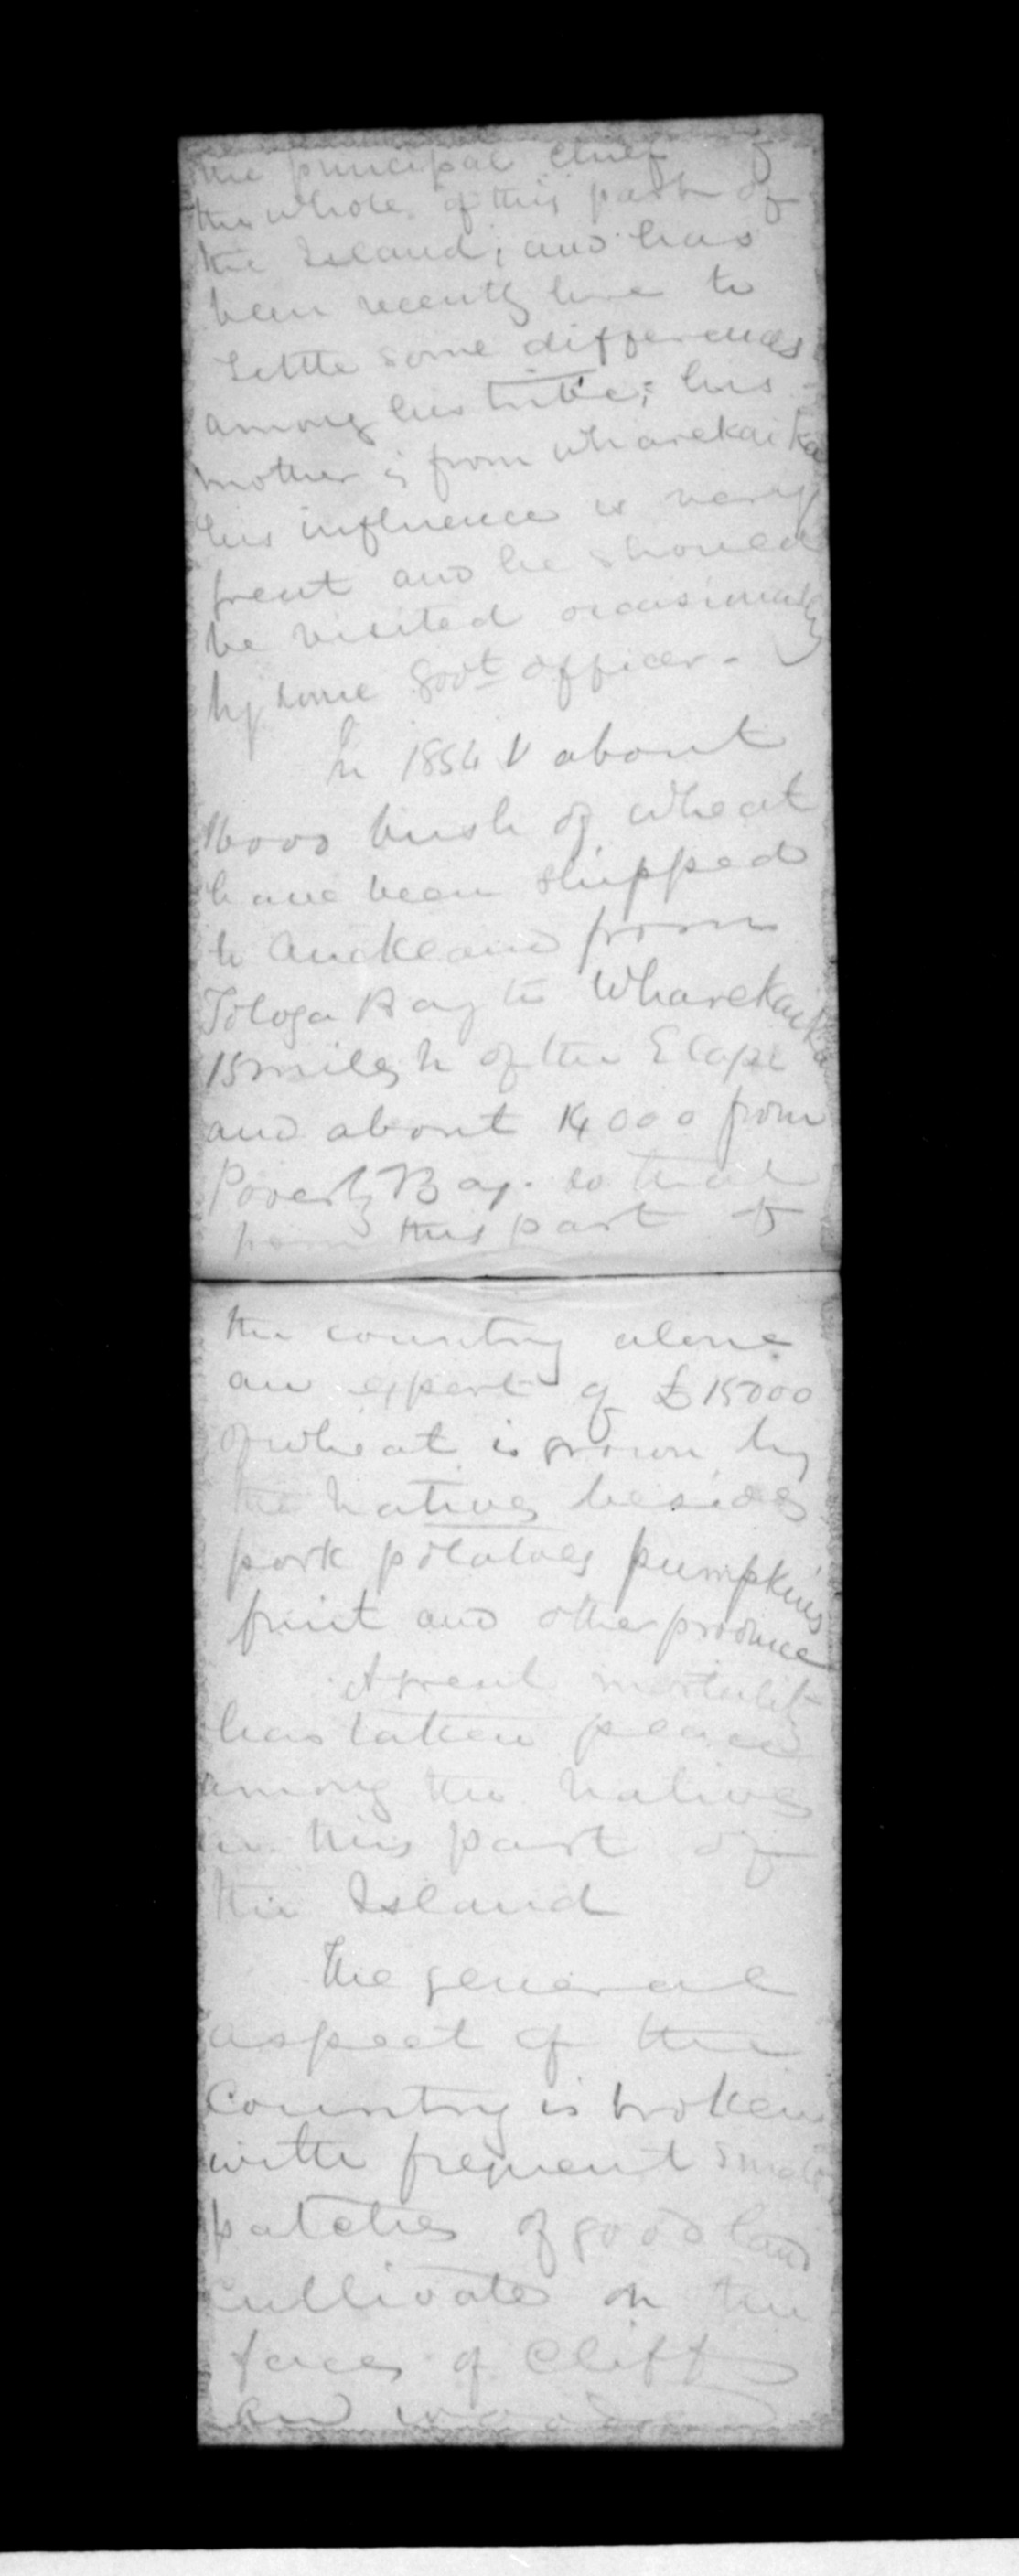 the principal Chief of
the whole of this part of
the Island; and has
been recently here to
settle some differences
among his tribe; his
mother is from Wharekaika
his influence is very
great and he should
be visited occasionally
by some Govt officer -
In 1854 V about
16000 bush of wheat
have been shipped
to Auckland from
Tologa Bay to Wharekaika
15 miles N of the E Cape
and about 14000 from
Poverty Bay. so that
from this part of
the country alone
an export of £15000
of wheat is grown by
the natives besides
pork potatoes pumpkins
fruit and other produce
A great mortality
has taken place
among the natives
in this part of
the Island
The general
aspect of the
Country is broken
with frequent small
patches of good land
Cultivated on the
faces of Cliffs
and